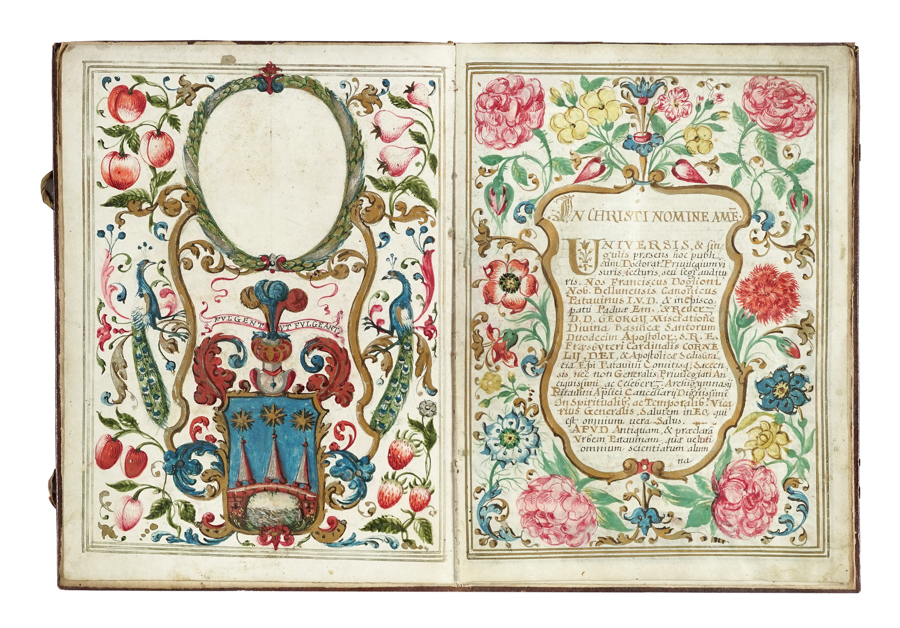 FVLGENT VT FVLGEANT
IN CHRISTI NOMINE AMĒ.
UNIVERSIS, & sin,
gulis præsens hoc publi,
cum Doctorat. Privilegium vi
suris, lecturis, seu legi auditu
ris. Nos Franciscus Doglioni
Nob. Bellunensis Canonicus
Patavinus I.V.D. & in Episco,
patu Paduæ Em. & Rever.
D.D. GEORGII Miseratione
Divina Basilicæ Santorum
Duodecim Apostolor. S.R.E.
Præsbyteri Cardinalis CORNE
LII, DEI, & Apostolicæ Sedis Gra,
tia Epi Patavini Comitisq; Saccen,
sis, nec non Generalis Privilegiati An
tiquissimi, ac Celeberr. Archigymnasij
Patavini Aplici Cancellarij Dignissimi
in Spiritualib. ac Temporalib. Vica
rius Generalis, Salutem in Eo, qui
est omnium vera Salus.
APVD Antiquam, & præclarā
Vrbem Patavinam, quæ veluti
omnium scientiarum alum
na